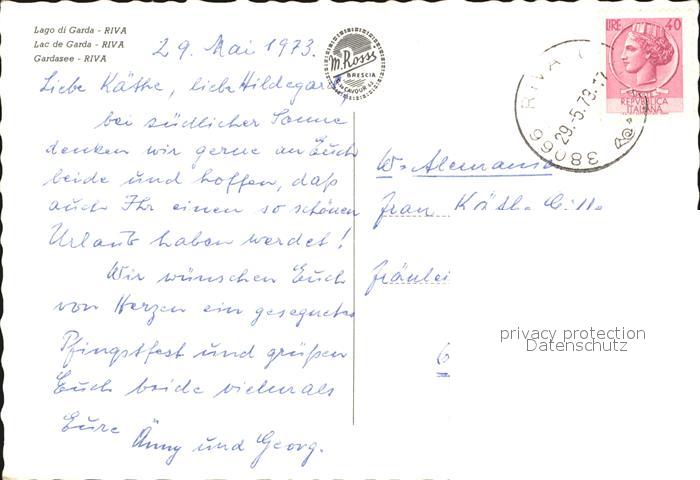 Lago di Garda - RIVA
Lac de Garda - RIVA
Gardasee - RIVA
29. Mai 1973.
Liebe Käthe, liebe Hildegard,
bei südlicher Sonne
denken wir gerne an Euch
beide und hoffen, daß
auch Ihr einen so schönen
Urlaub haben werdet!
Wir wünschen Euch
von Herzen ein gesegnetes
Pfingstfest und grüßen
Euch beide vielmals
Eure Änny und Georg.
M. Rossi
BRESCIA
LIRE 40
REPVBBLICA
ITALIANA
38066 RIVA
29.-5.73.-17
W.-Alemania
Frau Käthe
Fräulei
privacy protection
Datenschutz